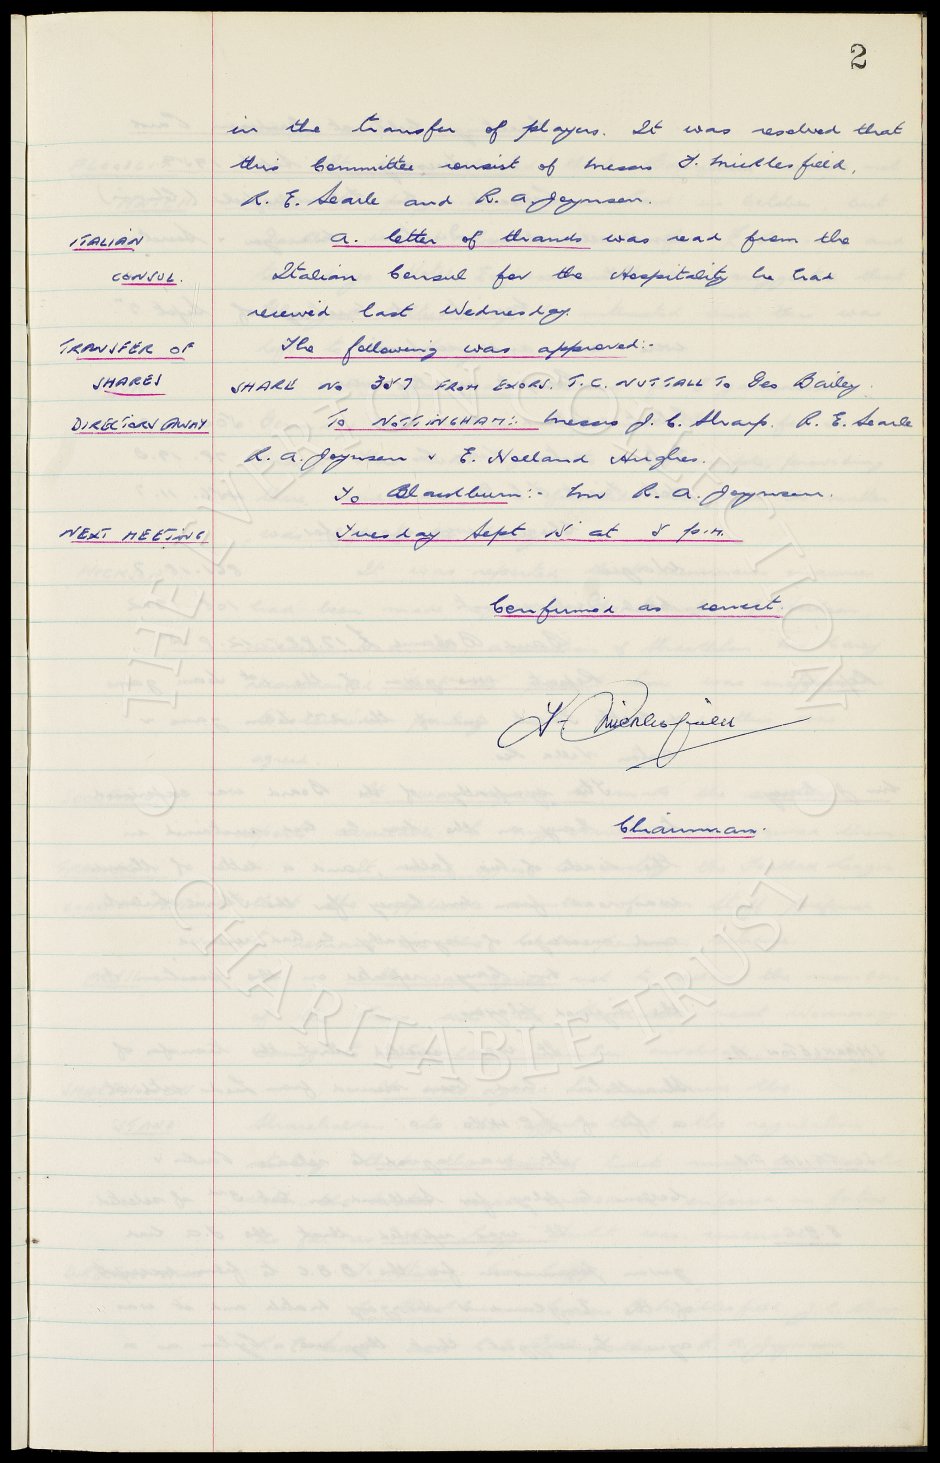 2
in the transfer of players. It was resolved that
this Committee consist of Messrs T. Micklesfield,
R. E. Searle and R. A. Joynson.
ITALIAN A. letter of thanks was read from the
CONSUL. Italian Consul for the Hospitality he had
received last Wednesday.
TRANSFER OF The following was approved:-
SHARES SHARE NO 387 FROM EXORS. T.C. NUTTALL TO Geo Bailey.
DIRECTORS AWAY To NOTTINGHAM:- Messrs J. C. Sharp. R. E. Searle
R. A. Joynson & E. Holland Hughes.
To Blackburn:- Mr R. A. Joynson.
NEXT MEETING Tuesday Sept at p.m.
Confirmed as correct.
Chairman.
THE EVERTON COLLECTION
CHARITABLE TRUST